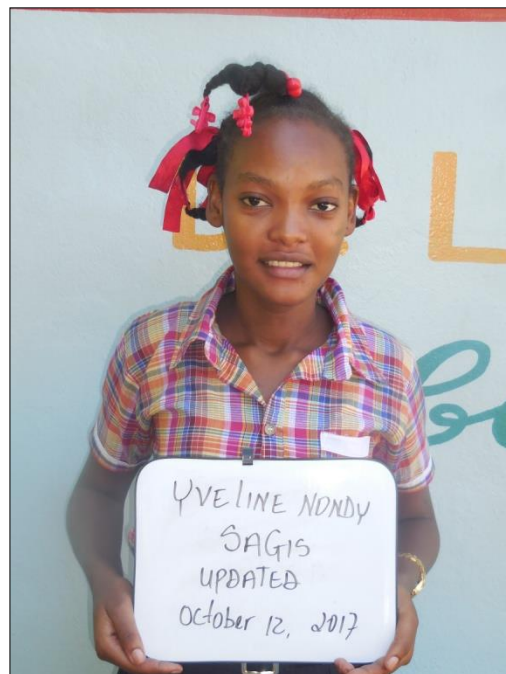 L
be
YVELINE NONDY
SAGIS
UPDATED
October 12, 2017